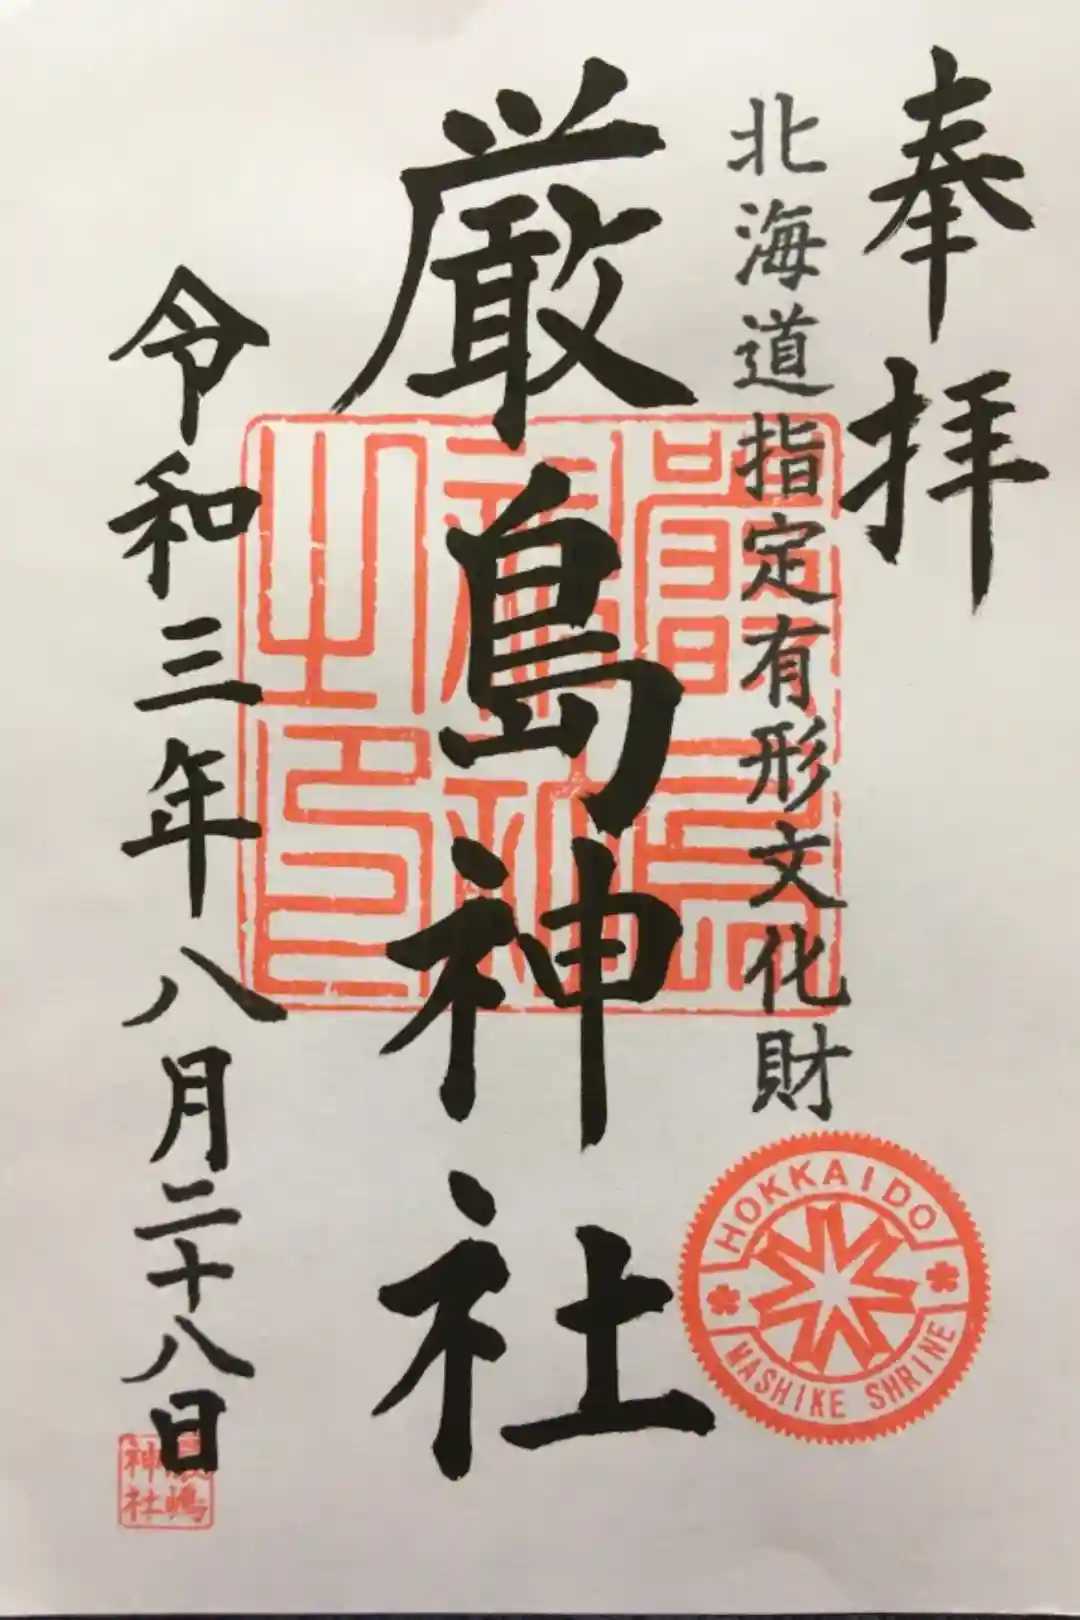 奉拝
北海道指定有形文化財
厳島神社
令和三年八月二十八日
HOKKAIDO
MASHIKE SHRINE
神社